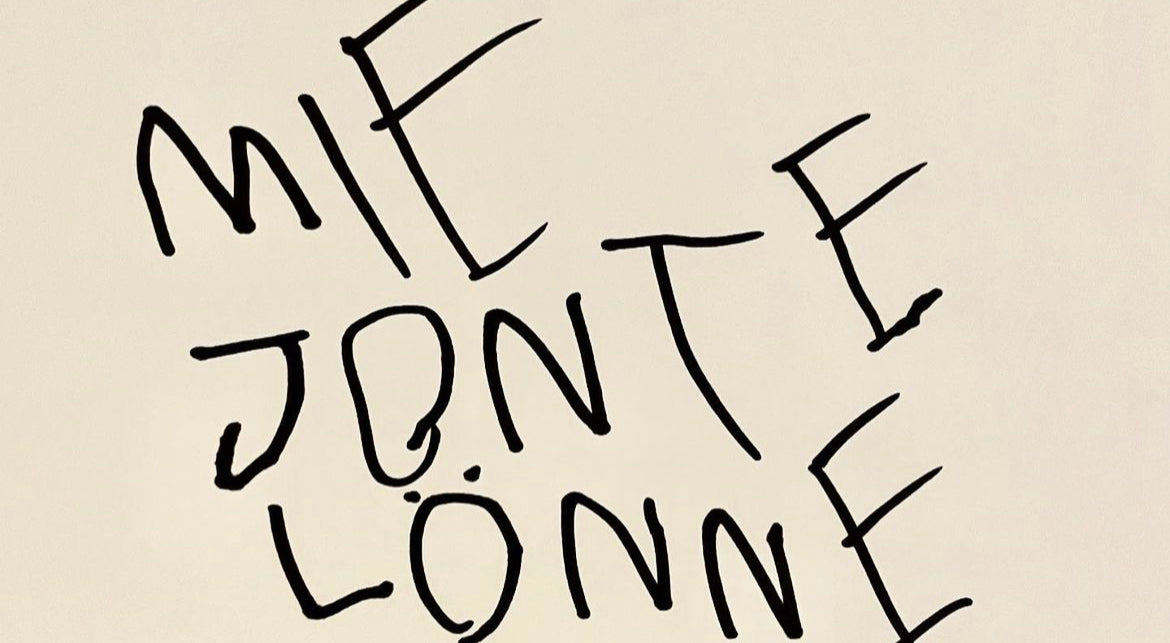 MIE
JONTE
LÖNNE